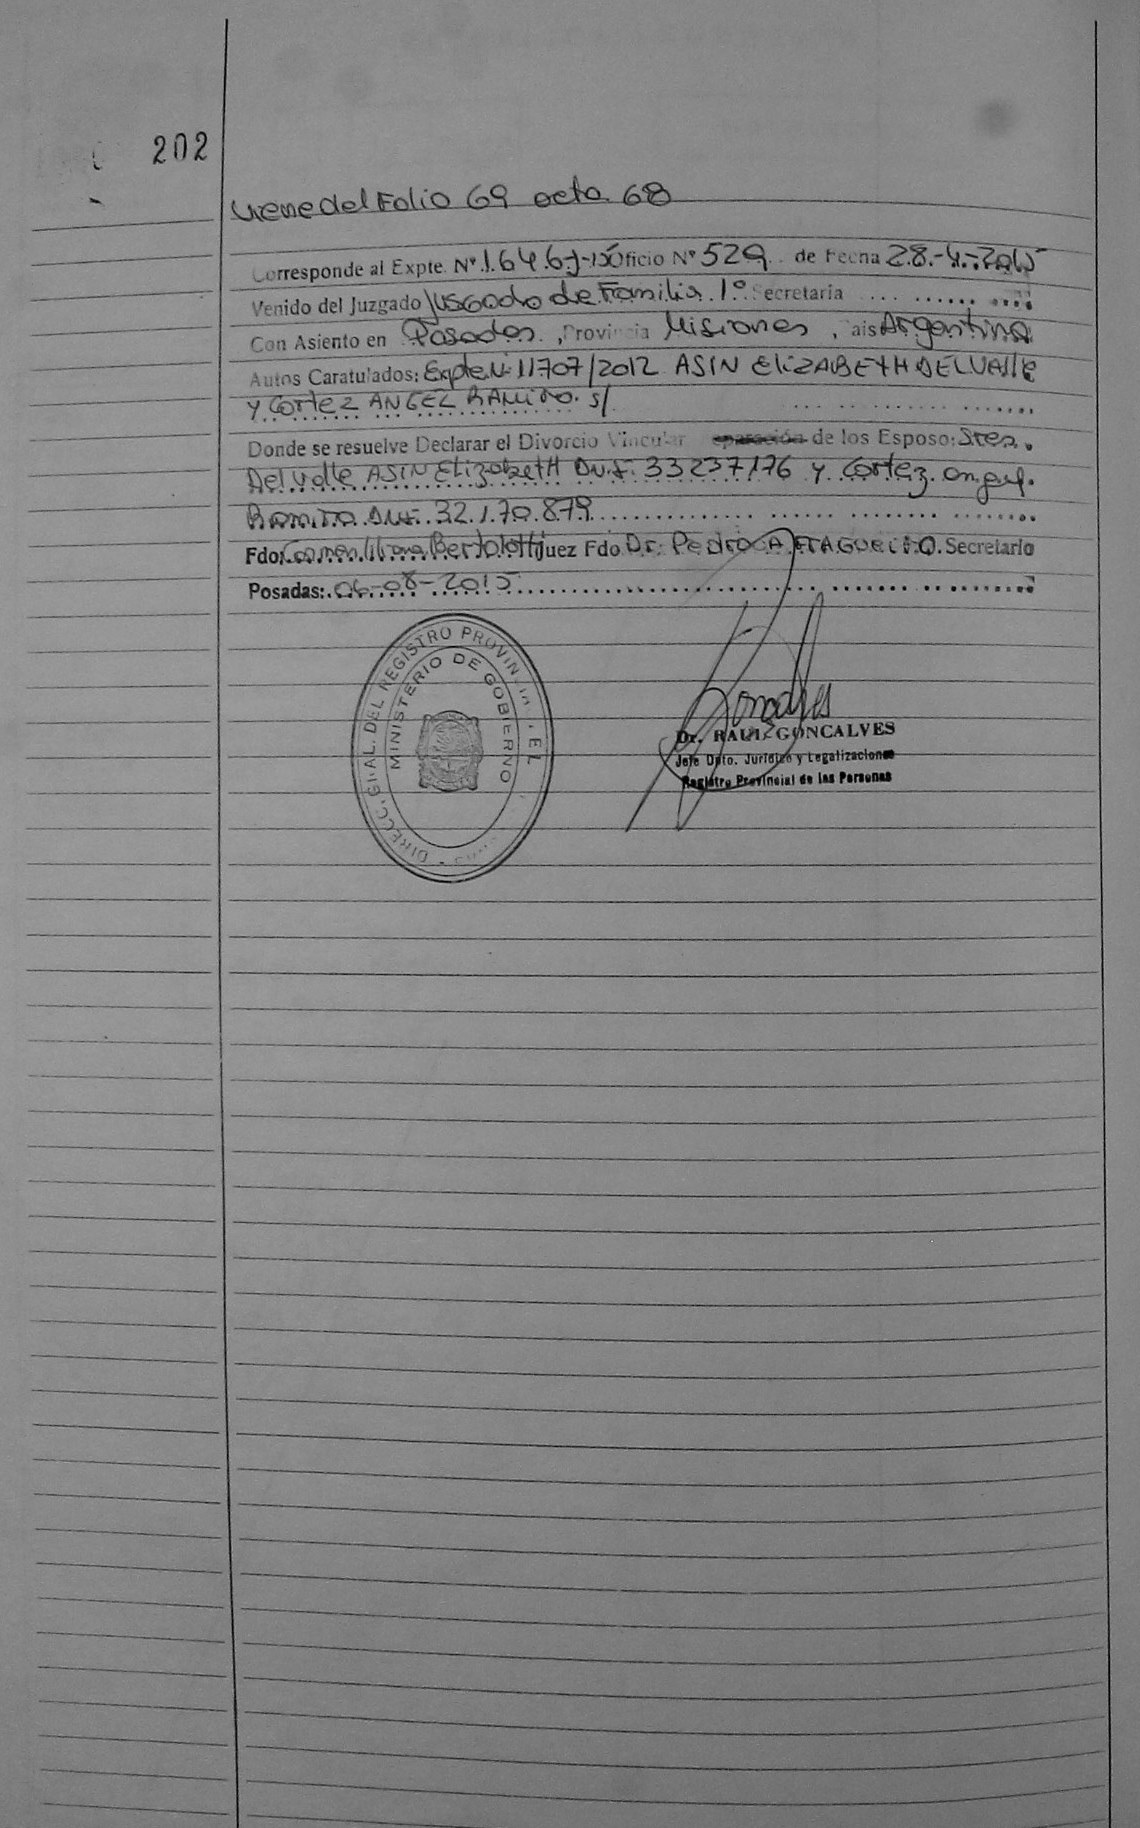 202
Viene del Folio 69 acta 68
Corresponde al Expte. Nº 1646-J-15 Oficio Nº 529 de Fecha 28-4-2015
Venido del Juzgado Jusgado de Familia 1º Secretaria
Con Asiento en Posadas, Provincia Misiones, Pais Argentina
Autos Caratulados: Expte Nº 11707/2012 ASIN ELIZABETH DEL VALLE
Y CORTEZ ANGEL RAMIRO. s/
Donde se resuelve Declarar el Divorcio Vincular de los Esposo: Sres.
Del Valle ASIN ElizabetH D.N.I: 33237176 y Cortez angel
Ramiro DNI: 32.170.879
Fdo: Carmen Liliana Bertolotti Juez Fdo Dr. Pedro A Secretario
Posadas: 06-08-2015
DIRECC. GRAL. DEL REGISTRO PROVINCIAL DE L
MINISTERIO DE GOBIERNO
Dr. RAUL GONCALVES
Jefe Dpto. Jurídico y Legalizaciones
Registro Provincial de las Personas